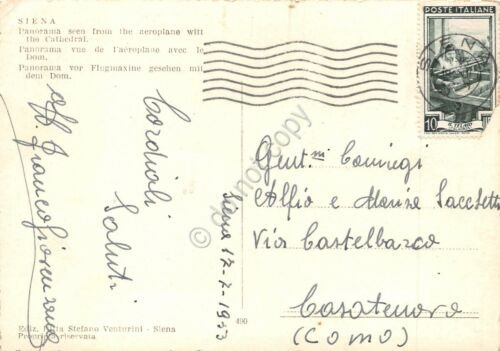 SIENA
Panorama seen from the aeroplane with
the Cathedral.
Panorama vue de l'aéroplane avec le
Dom.
Panorama vor Flugmaxine gesehen mit
dem Dom.
Cordiali
Saluti
Siena 17-7-1953
POSTE ITALIANE
10
IL TELAIO
SIENA
Gent.mi Coniugi
Alfio e Marisa Sacchetti
Via Castelbarco
Casatenovo
(Como)
Ediz. Ditta Stefano Venturini - Siena
Proprietà riservata
490
do not copy